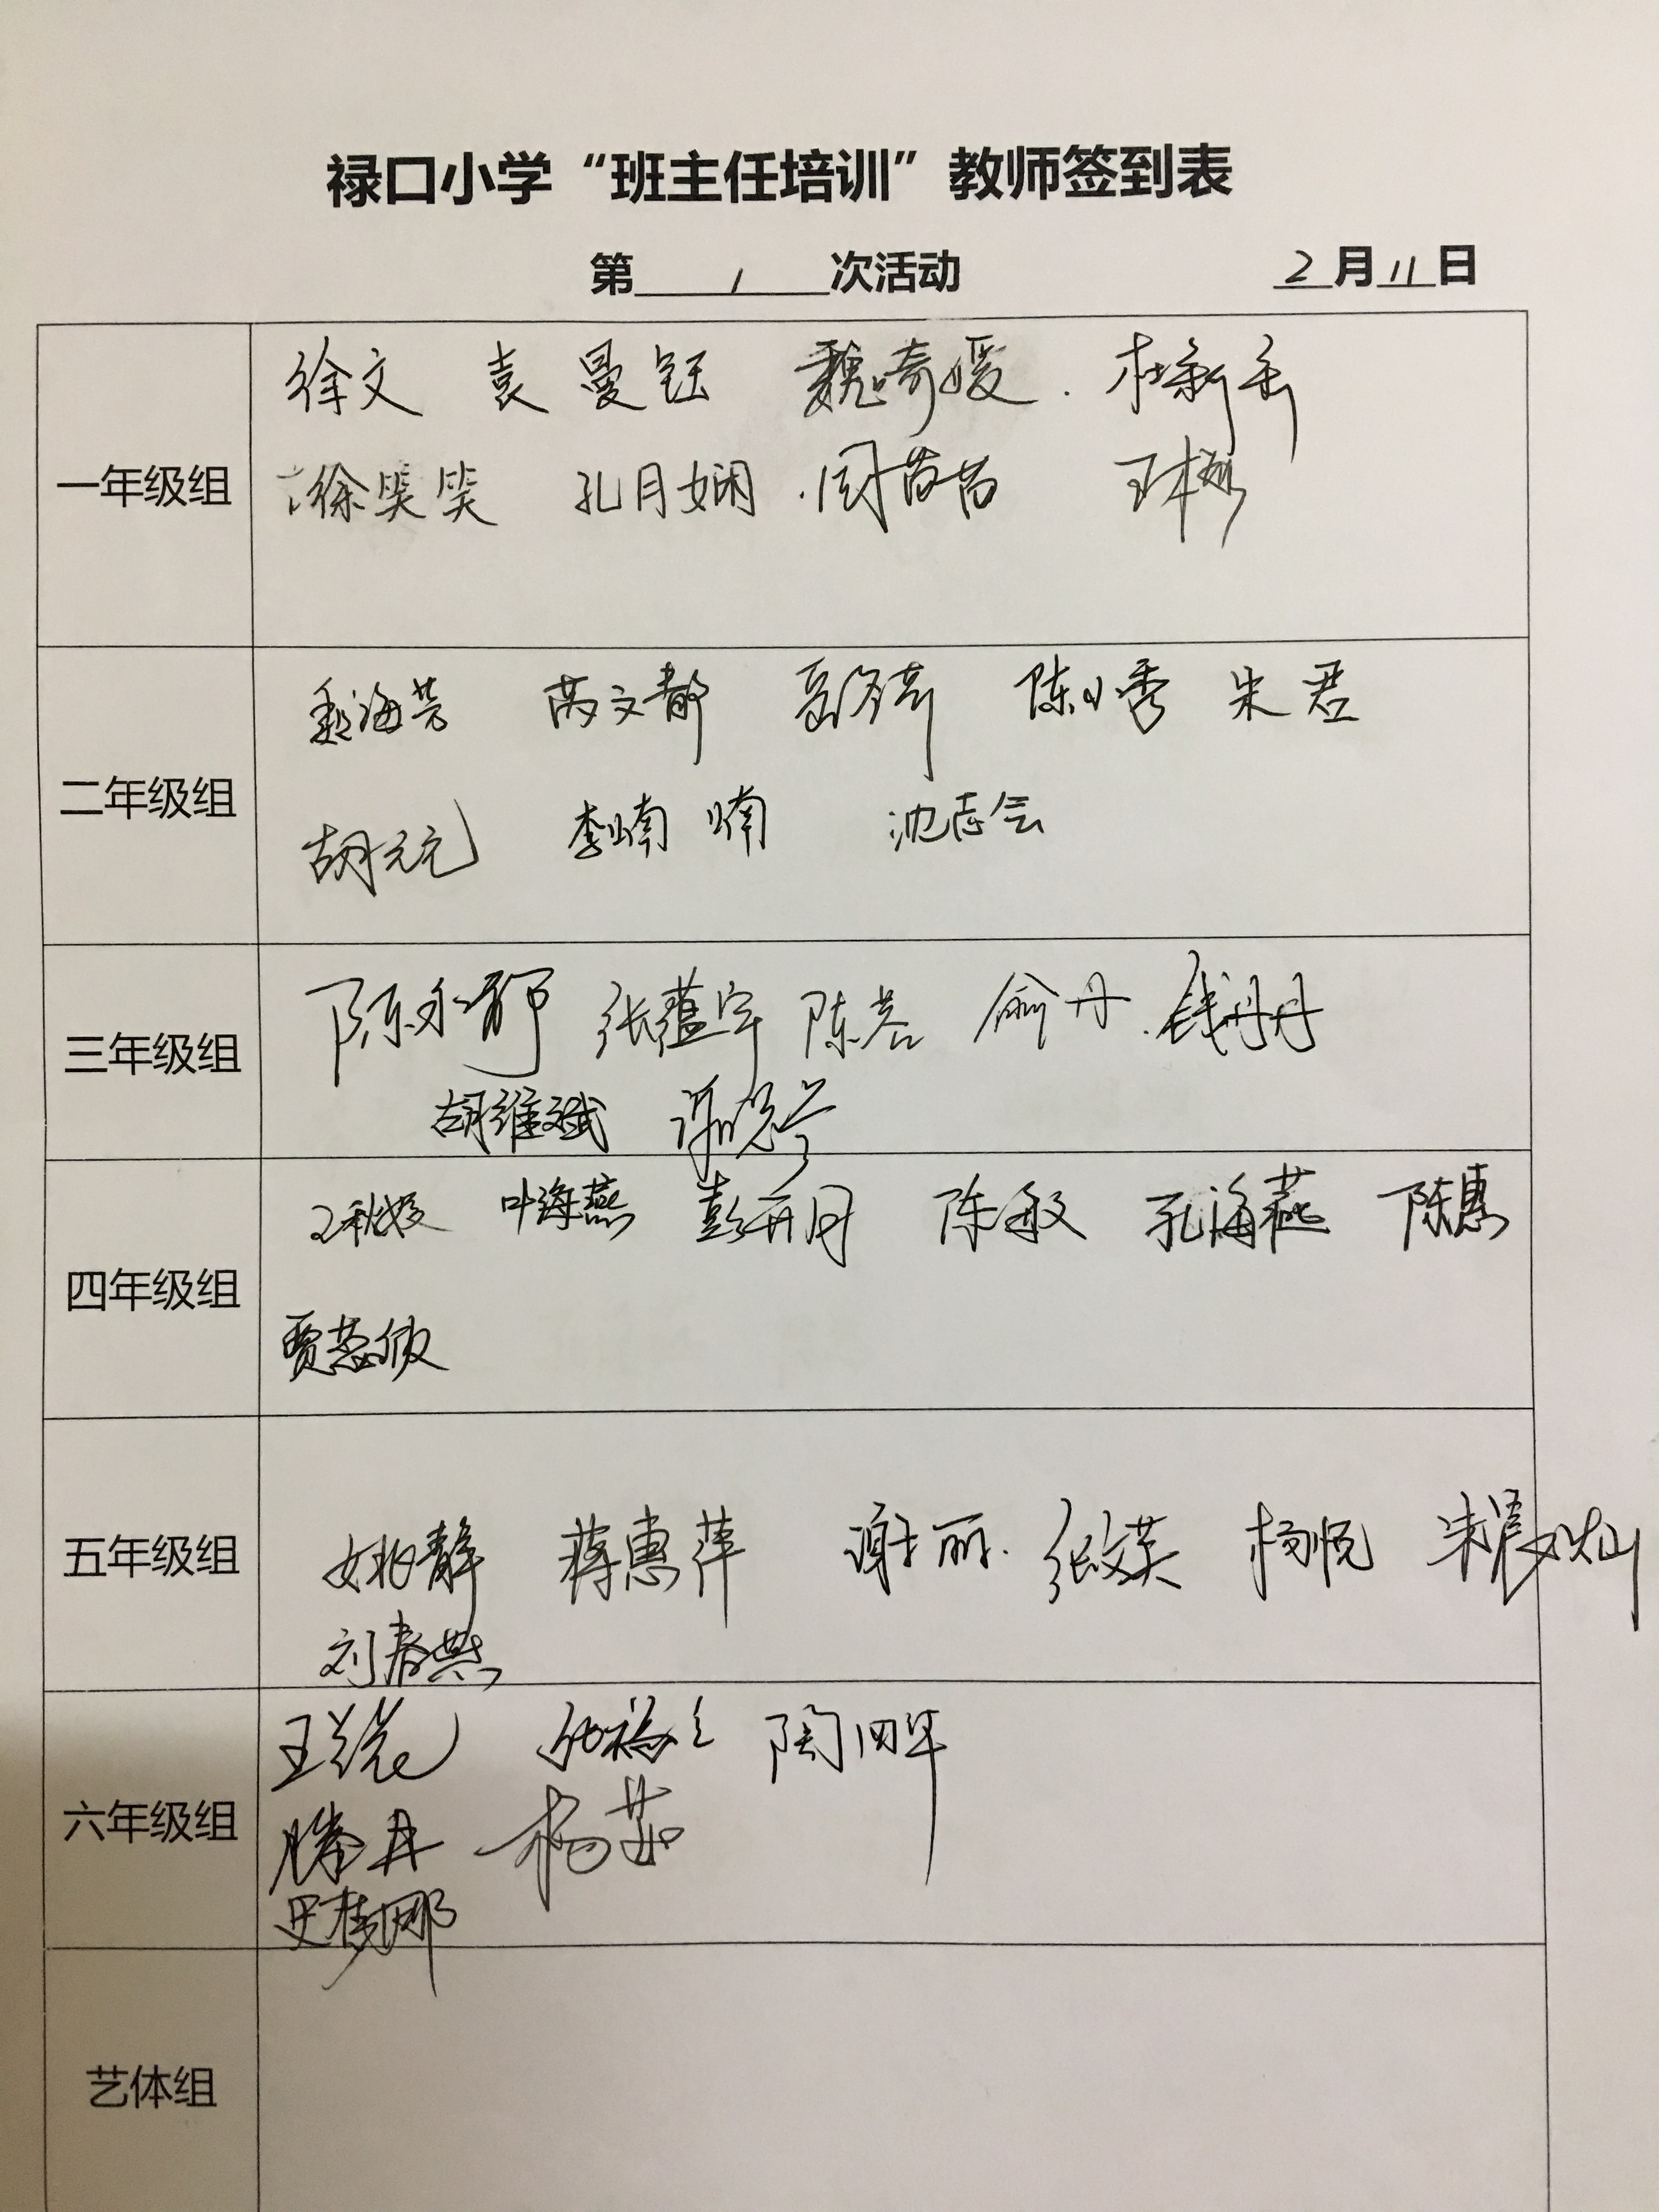 禄口小学“班主任培训”教师签到表
第 1 次活动 2月11日
一年级组
徐文 袁曼钰 魏奇媛 杜新
徐笑笑 孔月娴 周苗苗 王
二年级组
海芳 芮文静 陈小秀 朱君
胡元元 李喃喃 沈志会
三年级组
陈永 张蕴宇 陈 俞丹 钱丹丹
胡维斌
四年级组
王秋 叶海燕 彭开月 陈敏 孔海燕 陈惠
贾蕊
五年级组
姚静 蒋惠萍 谢丽 张文英 杨悦 朱
刘春燕
六年级组
王 陶
滕丹 杨茹
史 娜
艺体组